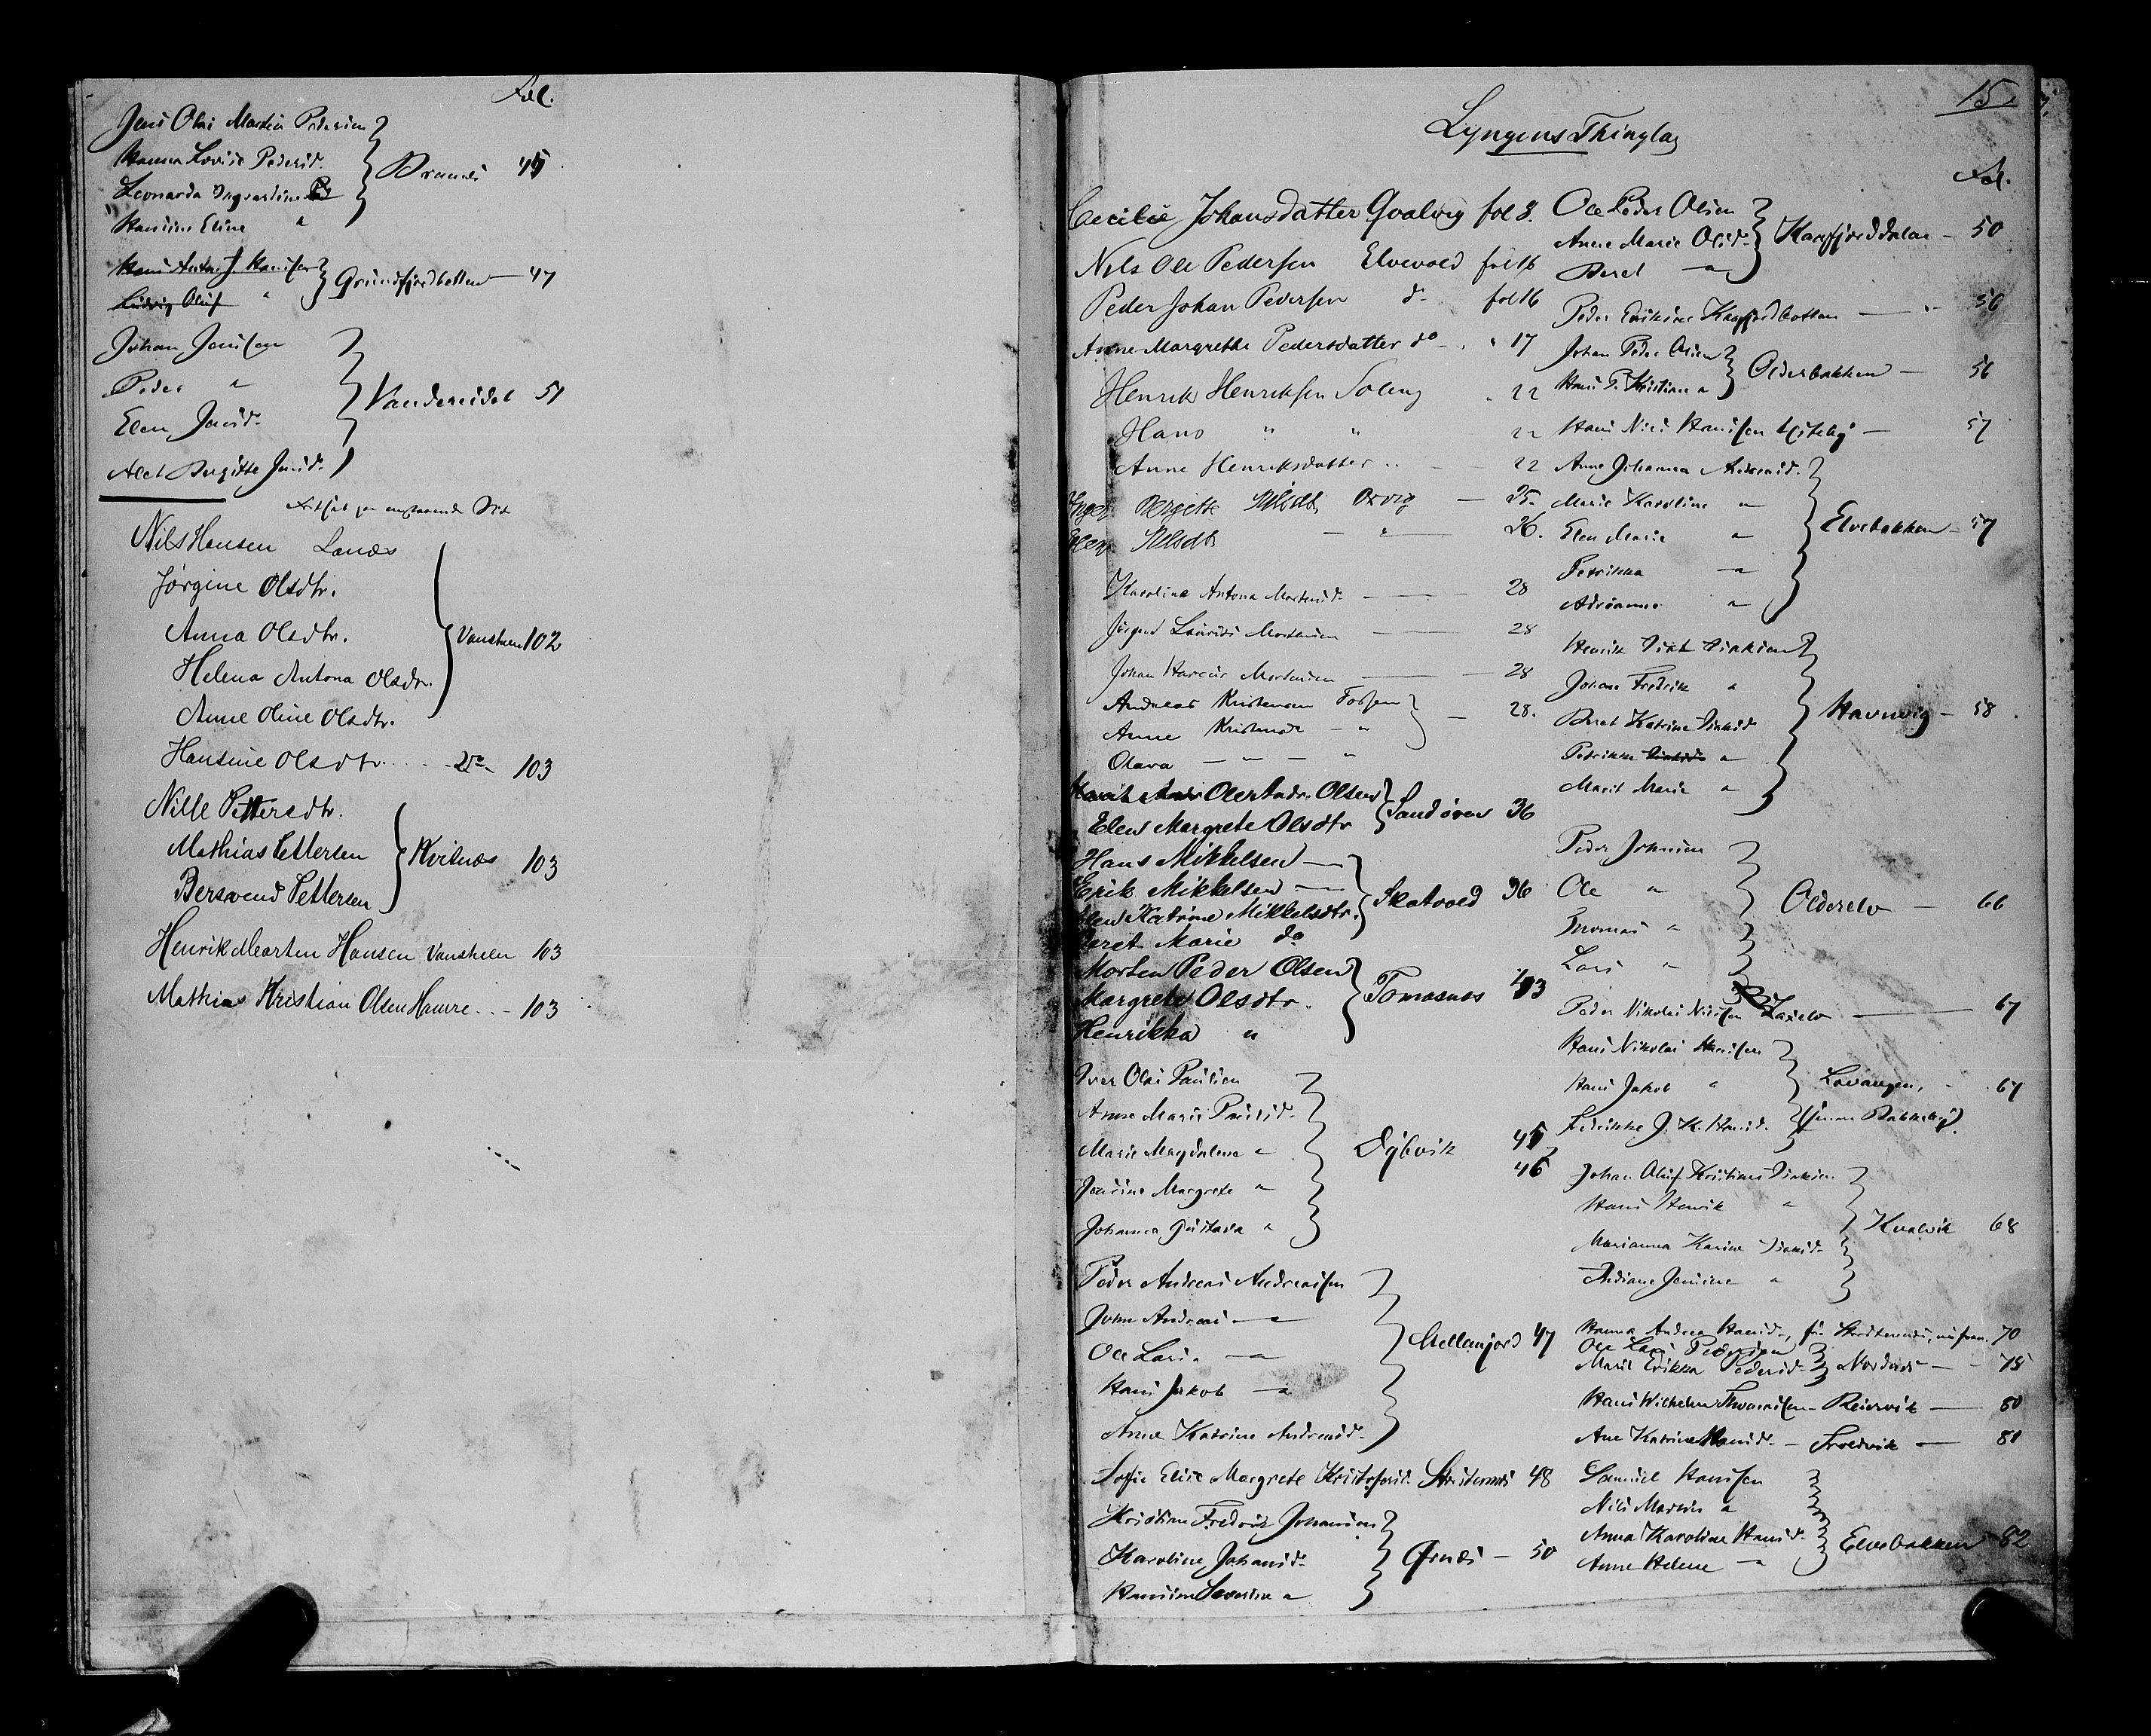 Fol.
Jens Olai Martin Pedersen
Hanna Lovise Pedersd.
Leonarda Ingvardine
Hansine Eline "
45
Hans Anton J. Hansen
Ludvig Oluf "
Grundfjordbotten — 47
Johan Jensen
Peder "
Elen Jensd.
Alet Bergitte Jensd.
Vandereidet 51
Nils Hansen Lanæs
Jørgine Olsdtr.
Anna Olsdtr.
Helena Antona Olsdtr.
Anne Oline Olsdtr.
Vanshelen 102
Hansine Olsdtr. - do - 103
Nille Pettersdtr.
Mathias Pettersen
Berswend Pettersen
Kvitnæs 103
Henrik Marten Hansen Vanshelen 103
Mathias Kristian Olsen Hamre . . - 103
15.
Lyngens Thinglag
Cecilie Johansdatter Qvalvig fol 8.
Nils Ole Pedersen Elvevold fol 16
Peder Johan Pedersen do fol 16
Anne Margrethe Pedersdatter do - . " 17
Henrik Henriksen Soleng " 22
Hans " " 22
Anne Henriksdatter .. — 22
Inger Bergitte Nilsdtr Oxvig — 25.
Nilsdtr — " — 26.
Karoline Antona Mortensd. — 28
Jørgen Laurits Mortensen — 28
Johan Hartvig Mortensen — 28
Andreas Kristensen Fossen
Anne Kristensdr - "
— 28.
Olava — " — "
Ole Andr. Olsen
Elen Margrete Olsdtr
Sandøren 36
Hans Mikkelsen —
Erik Mikkelsen —
Elen Katrine Mikkelsdtr.
Beret Marie do
Skatvold 36
Morten Peder Olsen
Margrete Olsdtr.
Henrikka "
Tomasnæs 43
Iver Olai Paulsen
Anne Marie Paulsd.
Marie Magdalena "
Jensine Margrete "
Johanna Gustava "
Dybvik 45
46
Peder Andreas Andreassen
John Andreas — "
Ole Lars. — "
Hans Jakob — "
Anne Katrine Andreasd.
Mellanjord 47
Sofie Elise Margrete Kristofersd. 48
Kristian Fredrik Johansen
Karoline Johansd.
Hansine Severine "
Ørnæs — 50
Fol.
Ole Peder Olsen
Anne Marie Olsd.
Beret — "
Kaafjorddalen — 50
Peder Eriksen Kaafjordbotten — " 56
Johan Peder Olsen
Hans P. Kristian "
Olderbakken — 56
Hans Nils Hansen — 57
Anne Johanna Andreasd.
Marie Karoline "
Elen Marie "
Petrikka — "
Adrianne "
Elvebakken — 57
Henrik Dirk Dirksen
Johan Fredrik "
Beret Katrine Dirksd
Petrikke "
Marit Marie "
Havnvig — 58
Peder Johnsen
Ole "
Thomas "
Lars "
Olderelv — 66
Peder Nikolai Nilsen Laxelv — 67
Hans Nikolai Hansen
Hans Jakob "
Fredrikke J. K. Hansd.
Lovangen, 67
Johan Oluf Kristian Dirksen
Hans Henrik "
Marianna Karine Dirksd.
Andriane Jensine "
Kvalvik 68
Hanna Andrea Hansd., 70
Ole Lars Pedersen
Marit Erikka Pedersd.
Nordnæs — 78
Hans Wilhelm Thomassen — Reiervik — 80
Ane Katrine Hansd. — Troldvik — 81
Samuel Hansen
Nils Martin "
Anna Karoline Hansd.
Anne Helene — "
Elvebakken — 82